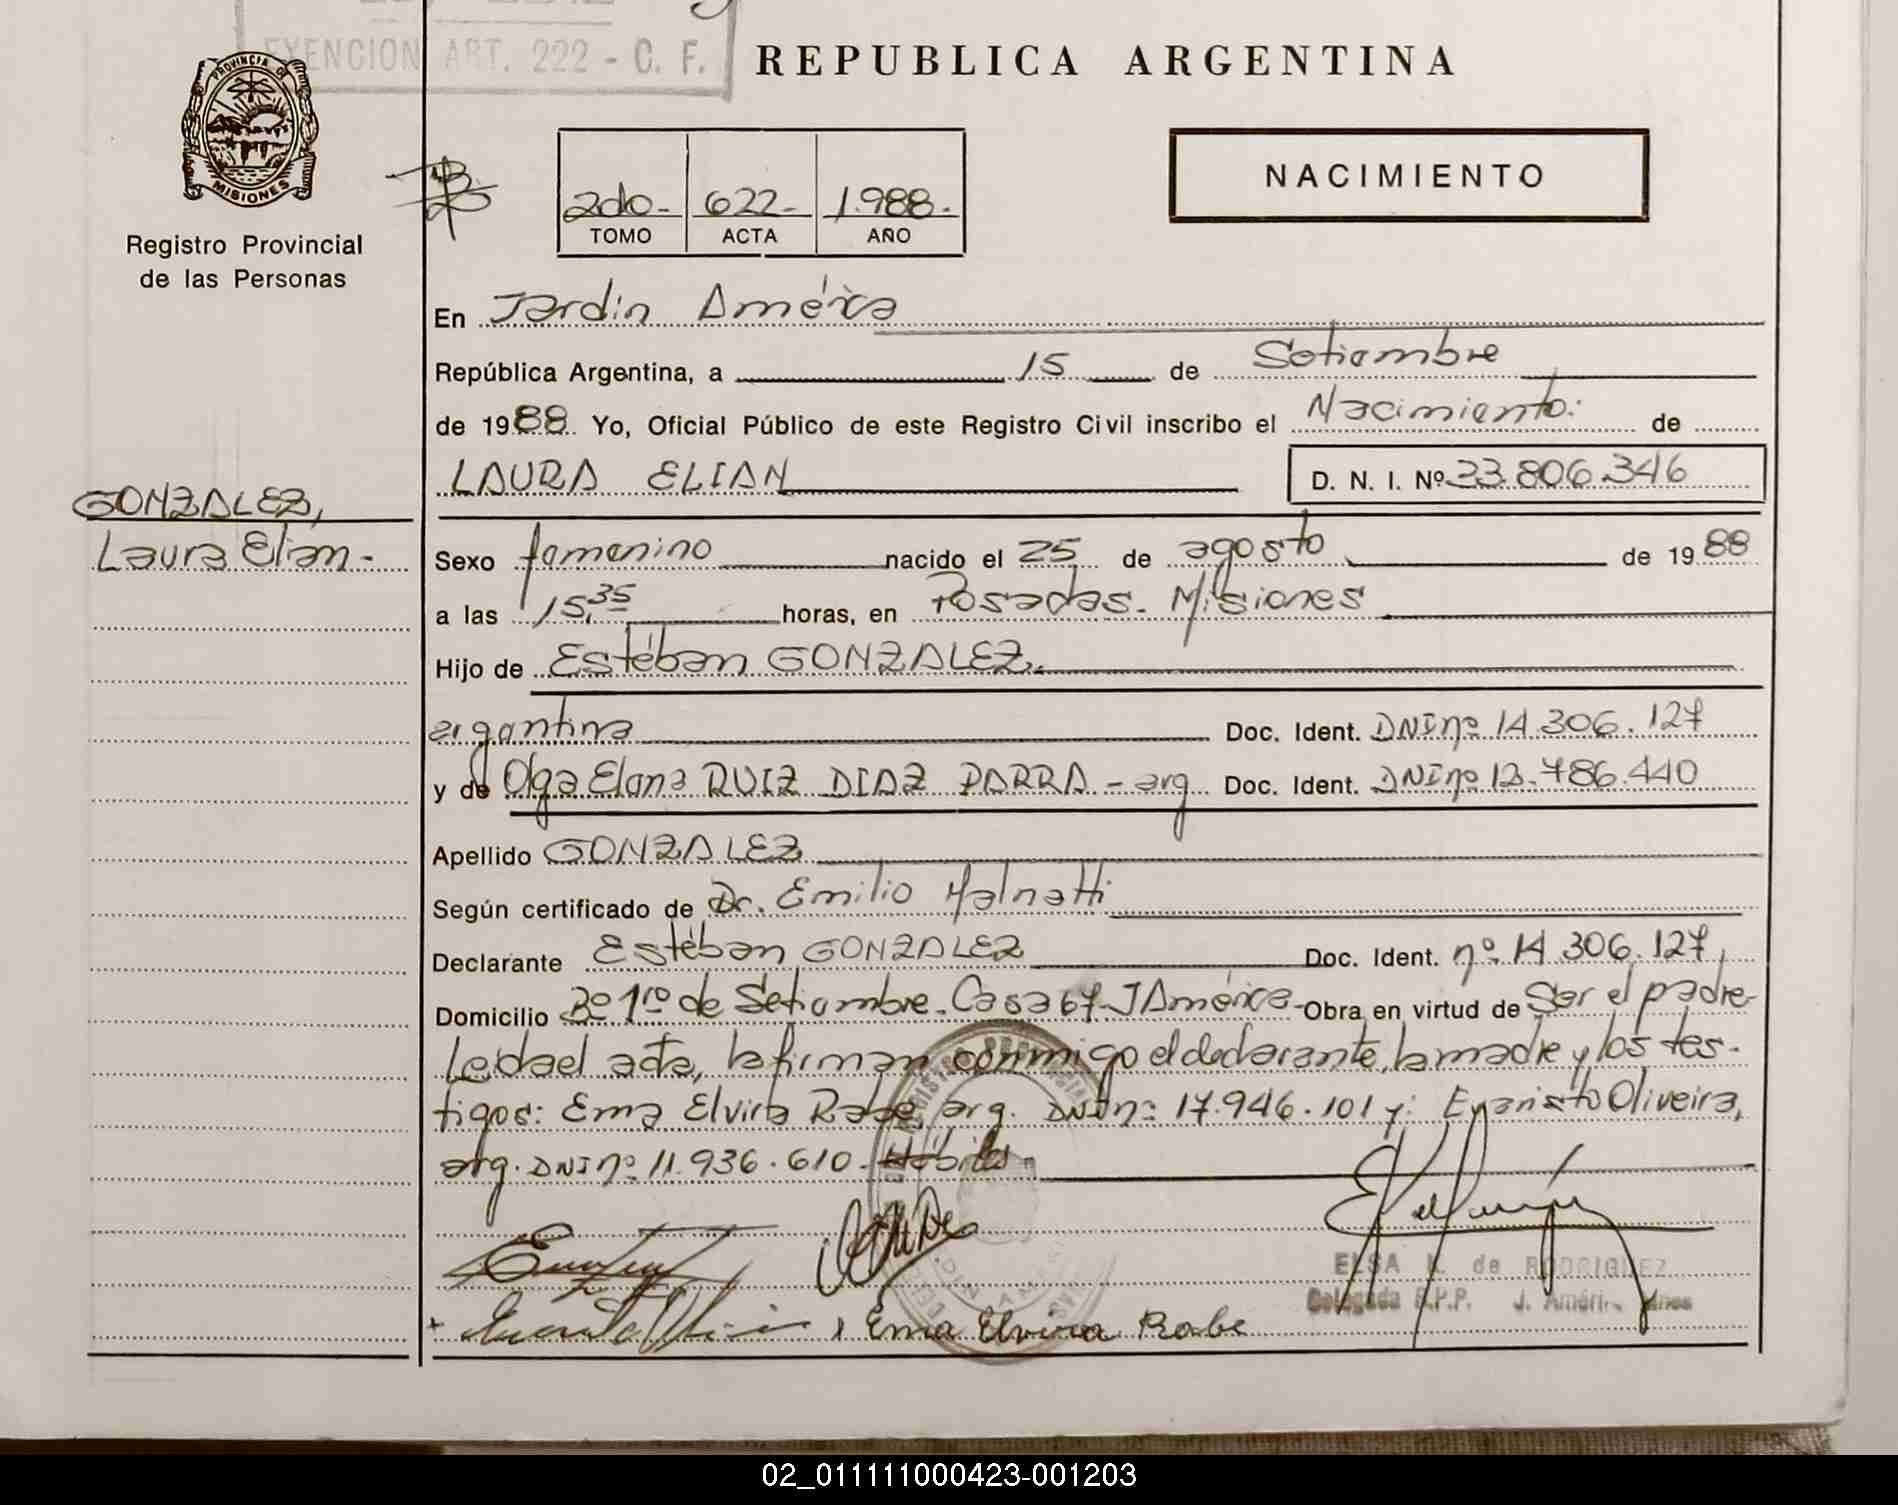 EXENCION ART. 222 - C. F.
REPUBLICA ARGENTINA
PROVINCIA DE
MISIONES
Registro Provincial
de las Personas
2do- 622- 1.988.
TOMO ACTA AÑO
NACIMIENTO
En Jardín América
República Argentina, a 15 de Setiembre
de 1988 Yo, Oficial Público de este Registro Civil inscribo el Nacimiento: de
LAURA ELIAN D. N. I. Nº 33.806.346
GONZALEZ,
Laura Elian-
Sexo femenino nacido el 25 de agosto de 1988
a las 15,35 horas, en Posadas. Misiones
Hijo de Estéban GONZALEZ.
argentina Doc. Ident. DNInº 14.306.127
y de Olga Elena RUIZ DIAZ PARRA - arg Doc. Ident. DNInº 12.786.440
Apellido GONZALEZ
Según certificado de Dr. Emilio Malnatti
Declarante Estéban GONZALEZ Doc. Ident. nº 14.306.127,
Domicilio Bº 1ro de Setiembre. Casa 67 JAmérica- Obra en virtud de Ser el padre-
Leída el acta, la firman conmigo el declarante, la madre y los tes-
tigos: Ema Elvira Rabe, arg. DNInº 17.946.101 y: Evaristo Oliveira,
arg. DNInº 11.936.610. Hábiles-
ELSA K. de RODRIGUEZ
Delegada R.P.P. J. América Mnes
Ema Elvira Rabe
02_011111000423-001203